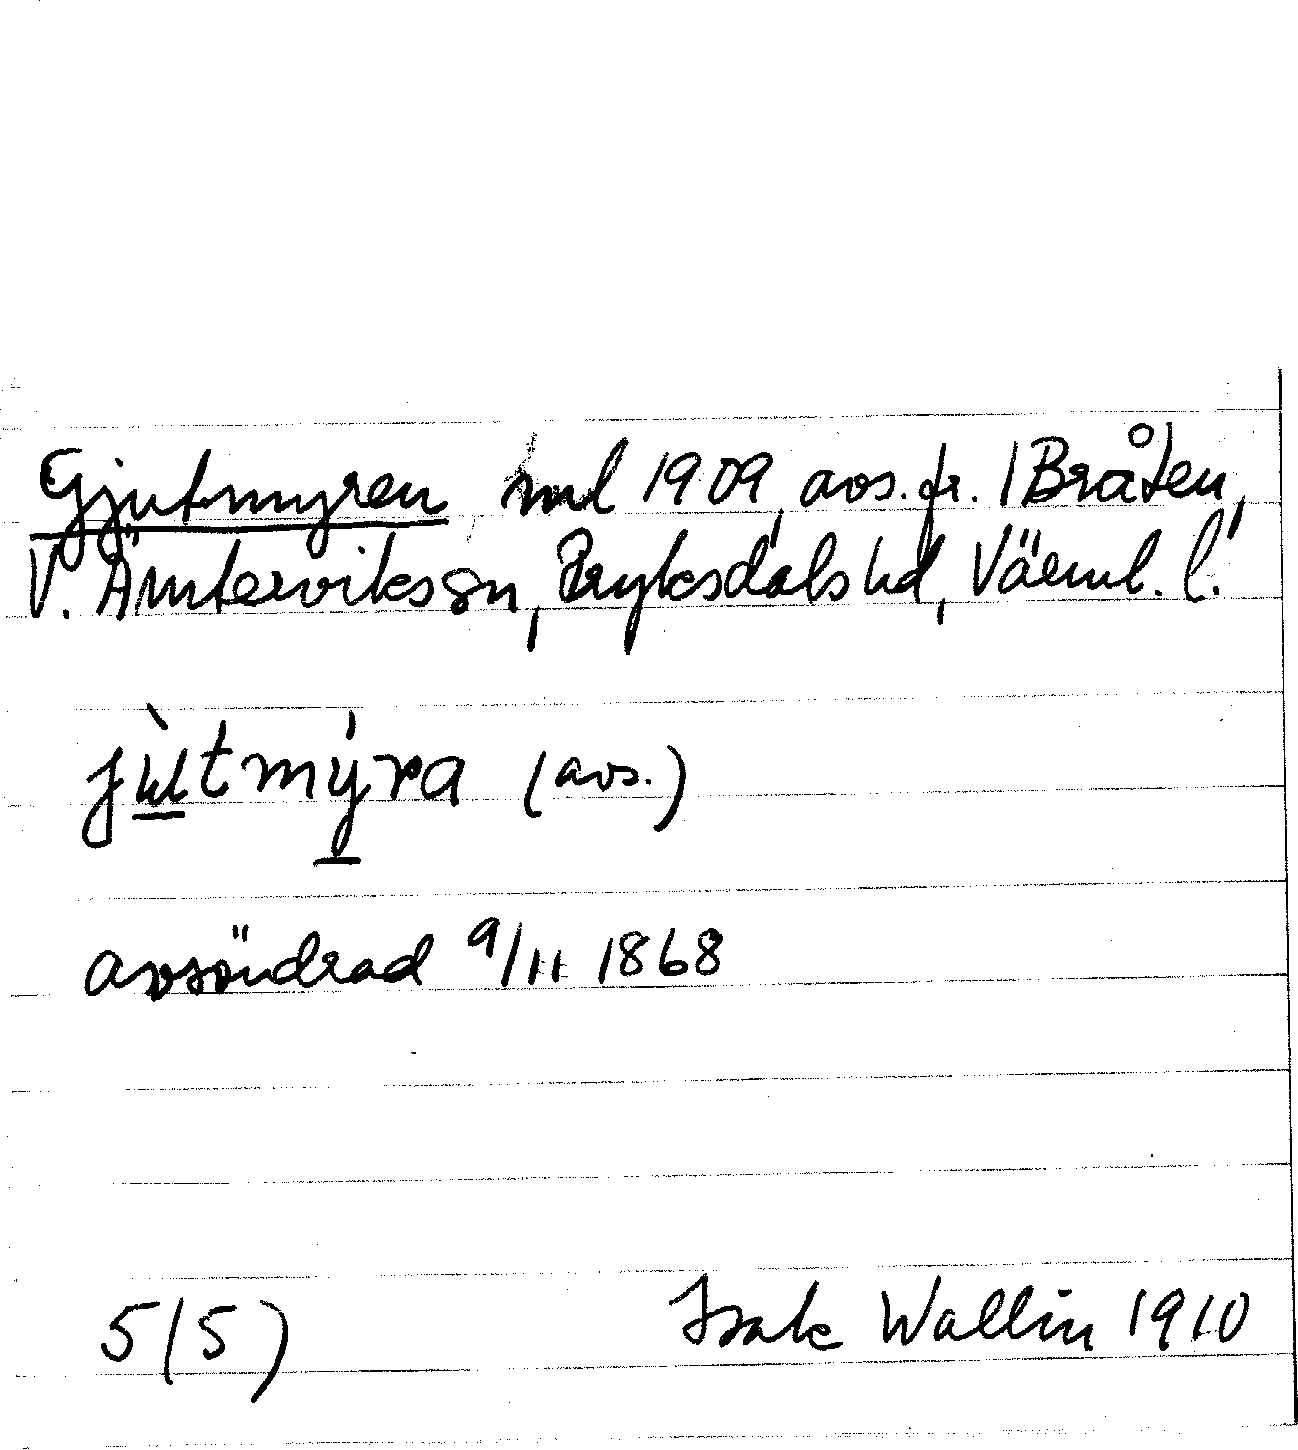 Gjutmyren ml 1909, avs. fr. 1 Bråten,
V. Ämterviks sn, Fryksdals hd, Värml. l.
jùtmýra (avs.)
avsöndrad 9/11 1868
5(5) Isak Wallin 1910